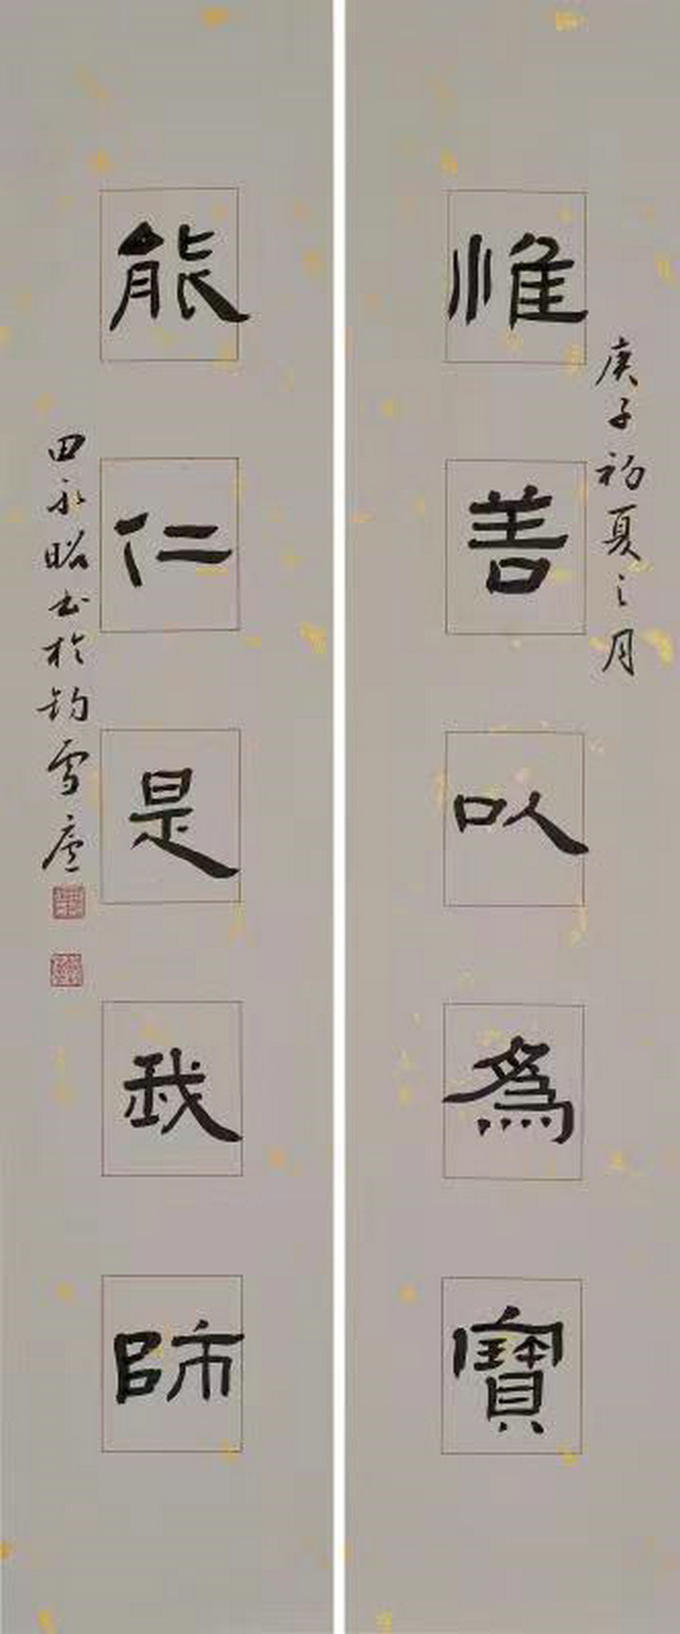 庚子初夏之月
惟善以為寶
能仁是我師
田永昭书於钓雪廬